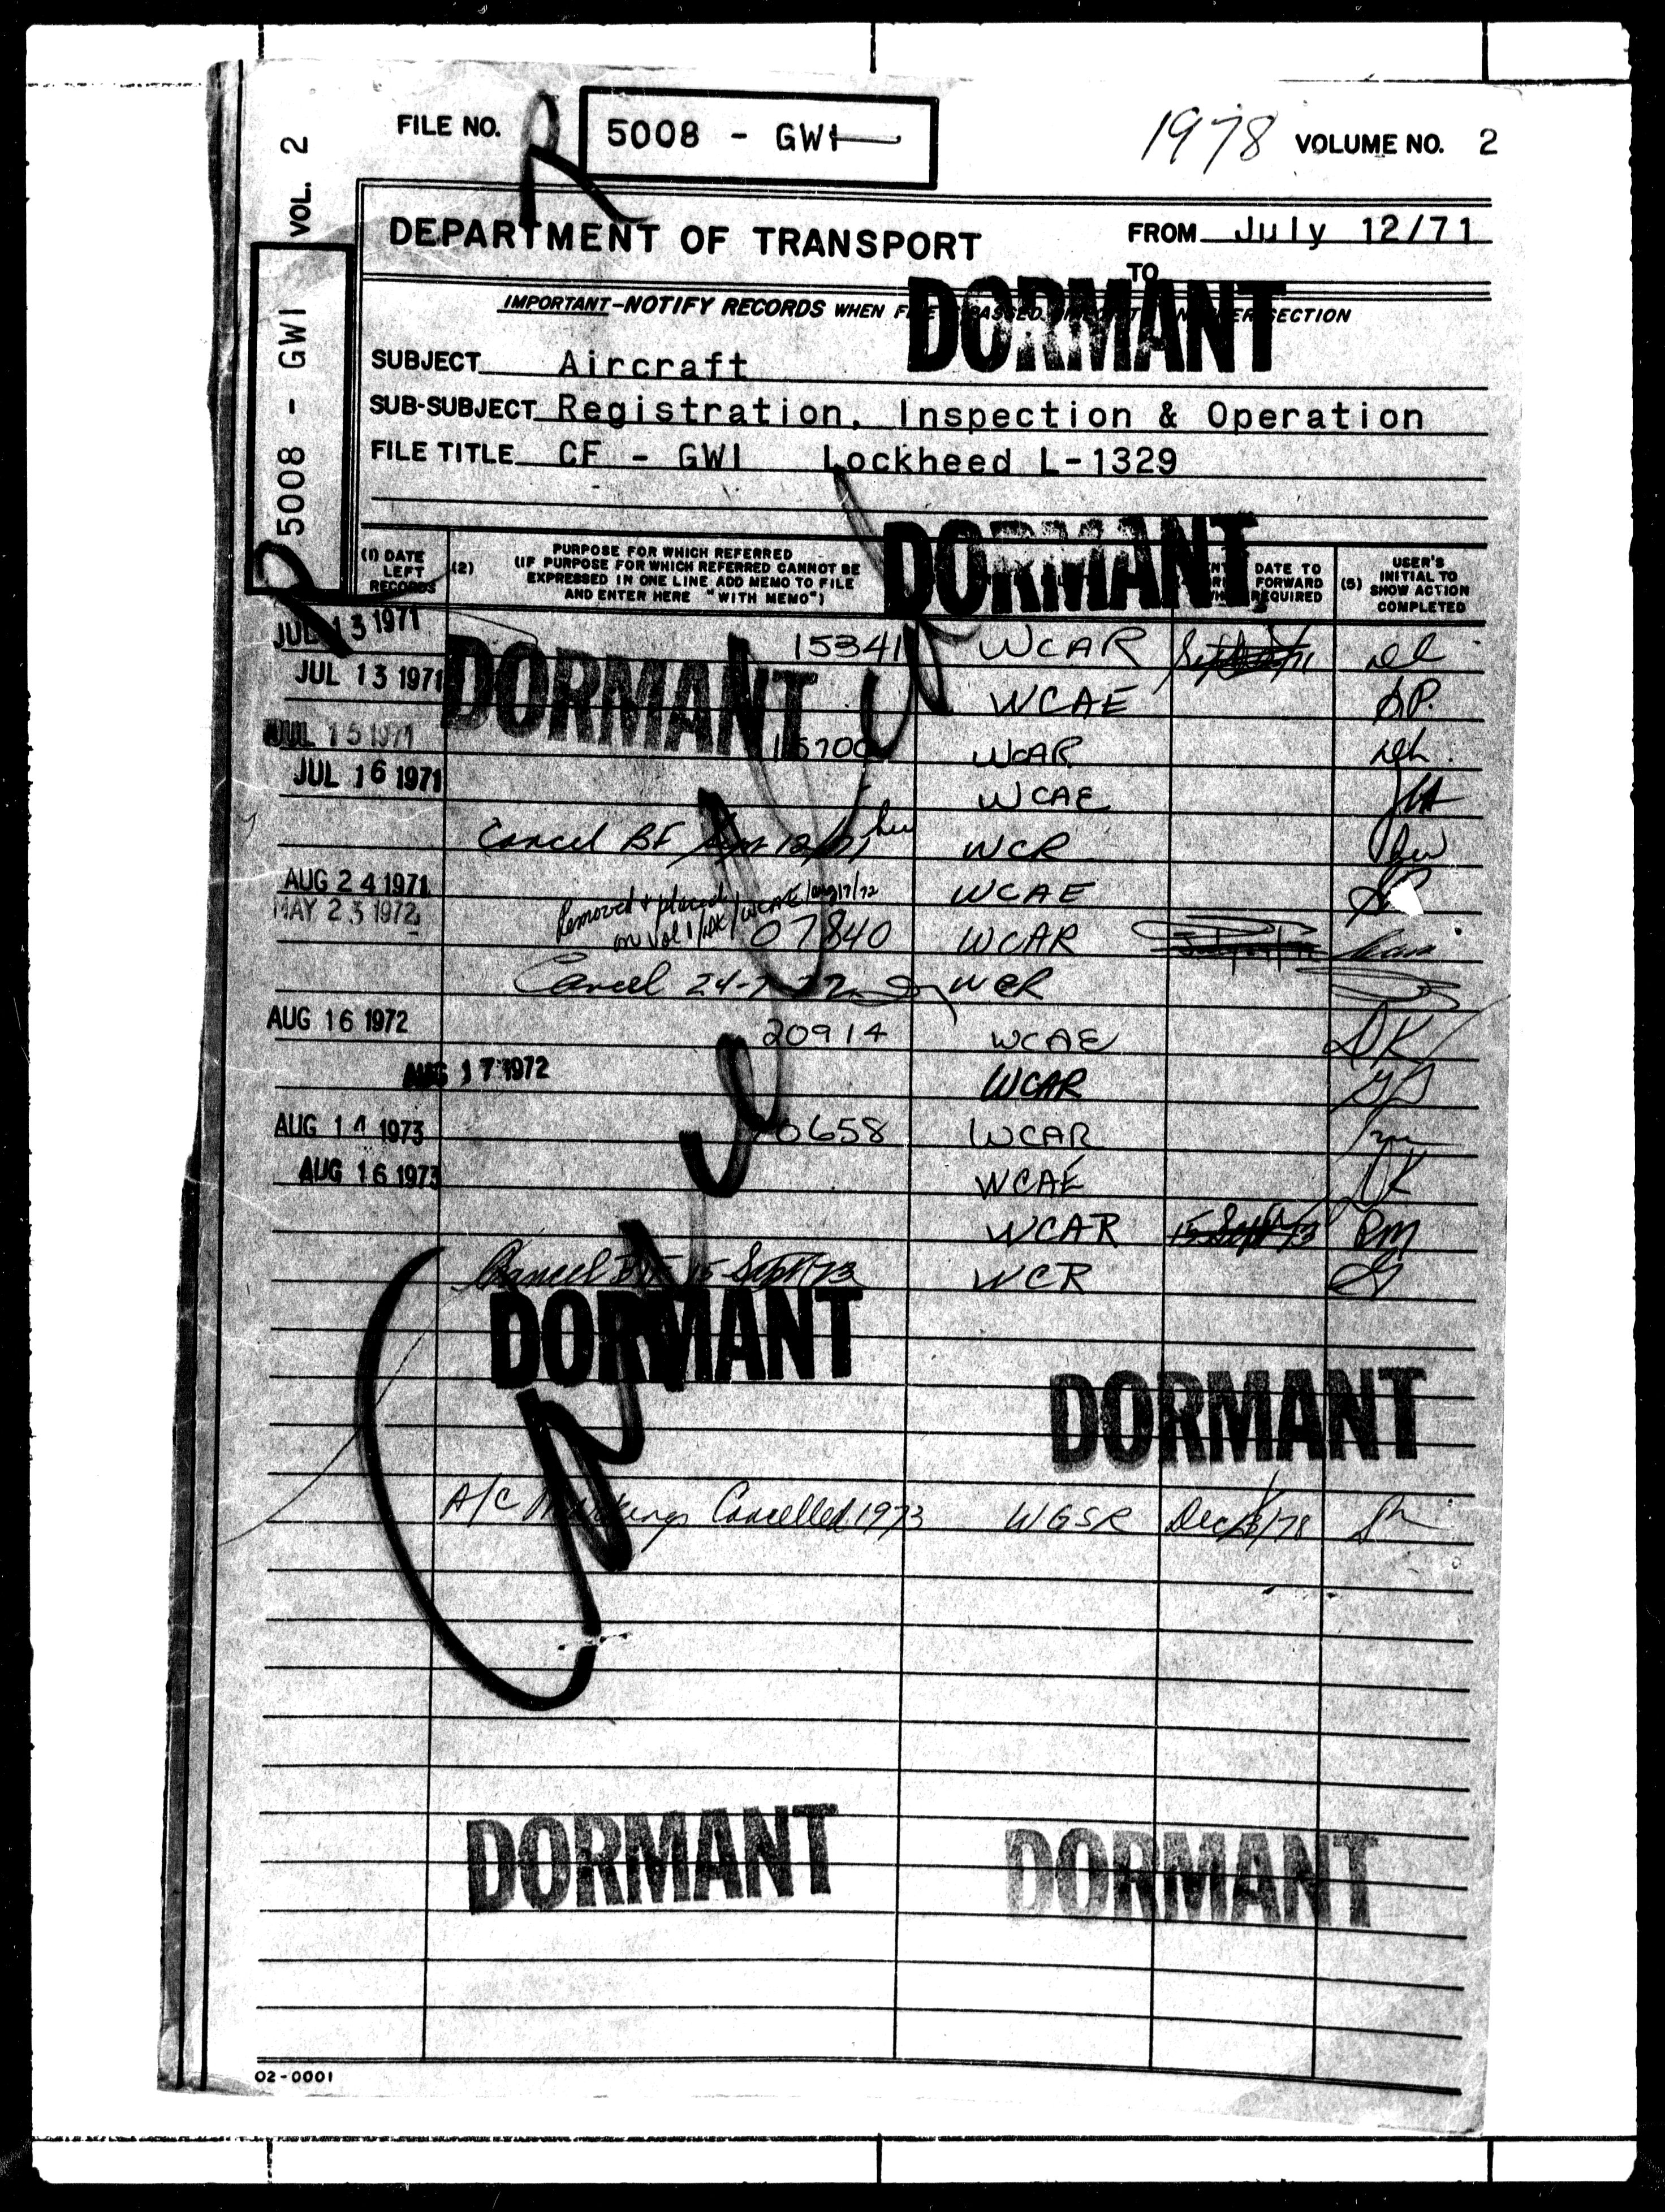 FILE NO. R 5008 - GWI 1978 VOLUME NO. 2
VOL. 2
R 5008 - GWI
DEPARTMENT OF TRANSPORT FROM July 12/71
TO
IMPORTANT-NOTIFY RECORDS WHEN SECTION
DORMANT
SUBJECT Aircraft
SUB-SUBJECT Registration, Inspection & Operation
FILE TITLE CF - GWI Lockheed L-1329
DORMANT
(1) DATE LEFT RECORDS
(2) PURPOSE FOR WHICH REFERRED
(IF PURPOSE FOR WHICH REFERRED CANNOT BE
EXPRESSED IN ONE LINE ADD MEMO TO FILE
AND ENTER HERE "WITH MEMO")
DATE TO
FORWARD
REQUIRED
(5) USER'S
INITIAL TO
SHOW ACTION
COMPLETED
JUL 13 1971 15341 WCAR
JUL 13 1971 WCAE
DORMANT
JUL 15 1971 WCAR
JUL 16 1971 WCAE
Cancel BF WCR
AUG 24 1971 WCAE
Removed & placed
on Vol 1/DK/WCAE/Aug 17/72
MAY 23 1972 07840 WCAR
Cancel WCR
AUG 16 1972 20914 WCAE DK
AUG 17 1972 WCAR
AUG 14 1973 0658 WCAR
AUG 16 1973 WCAE DK
WCAR 15 Sept 73 RM
Cancel BF 15 Sept 73 WCR
DORMANT
DORMANT
A/C Markings Cancelled 1973 WGSR
DORMANT
DORMANT
02-0001